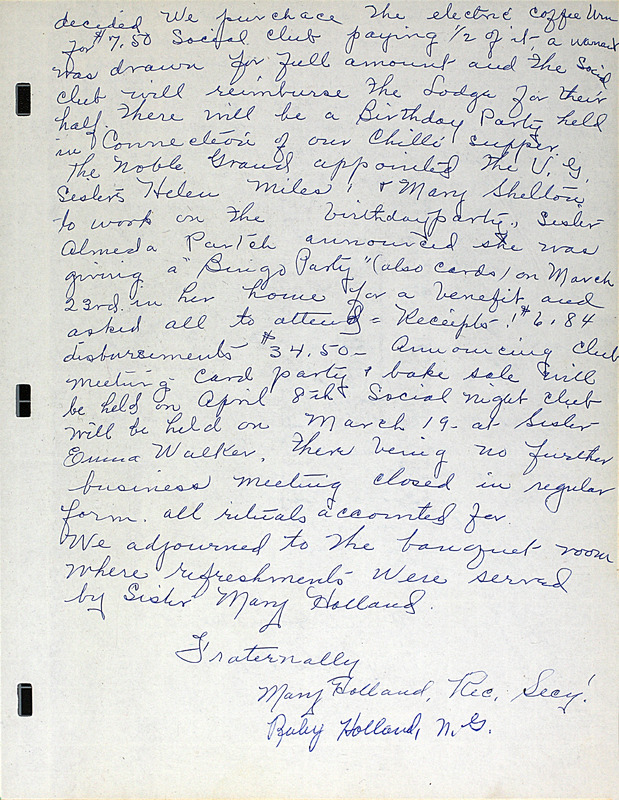 decided We purchace The electric coffee Urn
for $7.50 Social club paying 1/2 of it, a warrant
was drawn for full amount and The Social
club will reimburse The Lodge for their
half. There will be a Birthday Party held
in Connection of our Chilli supper.
The Noble Grand appointed The V. G.
Sisters Helen Miles, & Mary Shelton
to work on The birthday party, Sister
Almeda Partch announced she was
giving a "Bingo Party" (also cards) on March
23rd. in her home for a benefit and
asked all to attend = Receipts! $6.84
disbursements $34.50 - Announcing Club
meeting Card party & bake sale will
be held on April 8th Social night club
will be held on March 19 - at Sister
Emma Walker. There being no further
business meeting closed in regular
form. all rituals accounted for.
We adjourned to The banquet room
where refreshments were served
by Sister Mary Holland.
Fraternally
Mary Holland, Rec. Secy!
Ruby Holland, N.G.